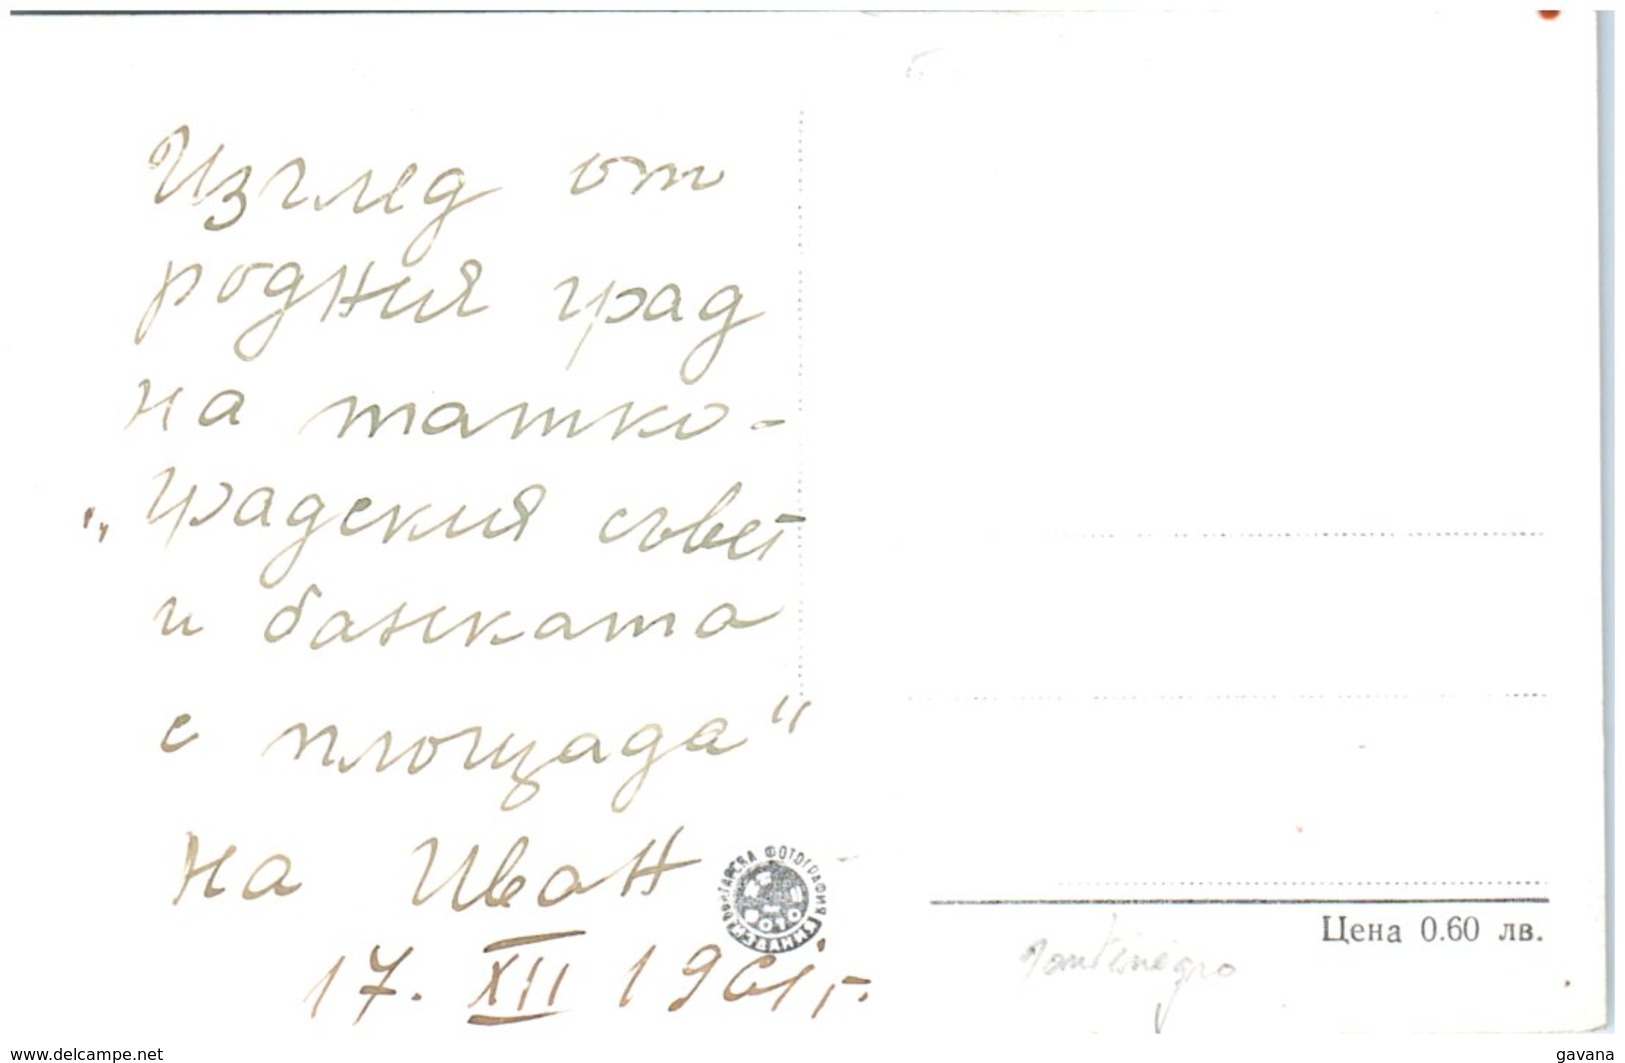 Изглед от
родния град
на татко-
„Градския съвет
и банката
с площада“
на Иван
17. XII 1961 г.
БЪЛГАРСКА ФОТОГРАФИЯ
ИЗДАНИЯ
Цена 0.60 лв.
montenegro
www.delcampe.net
gavana